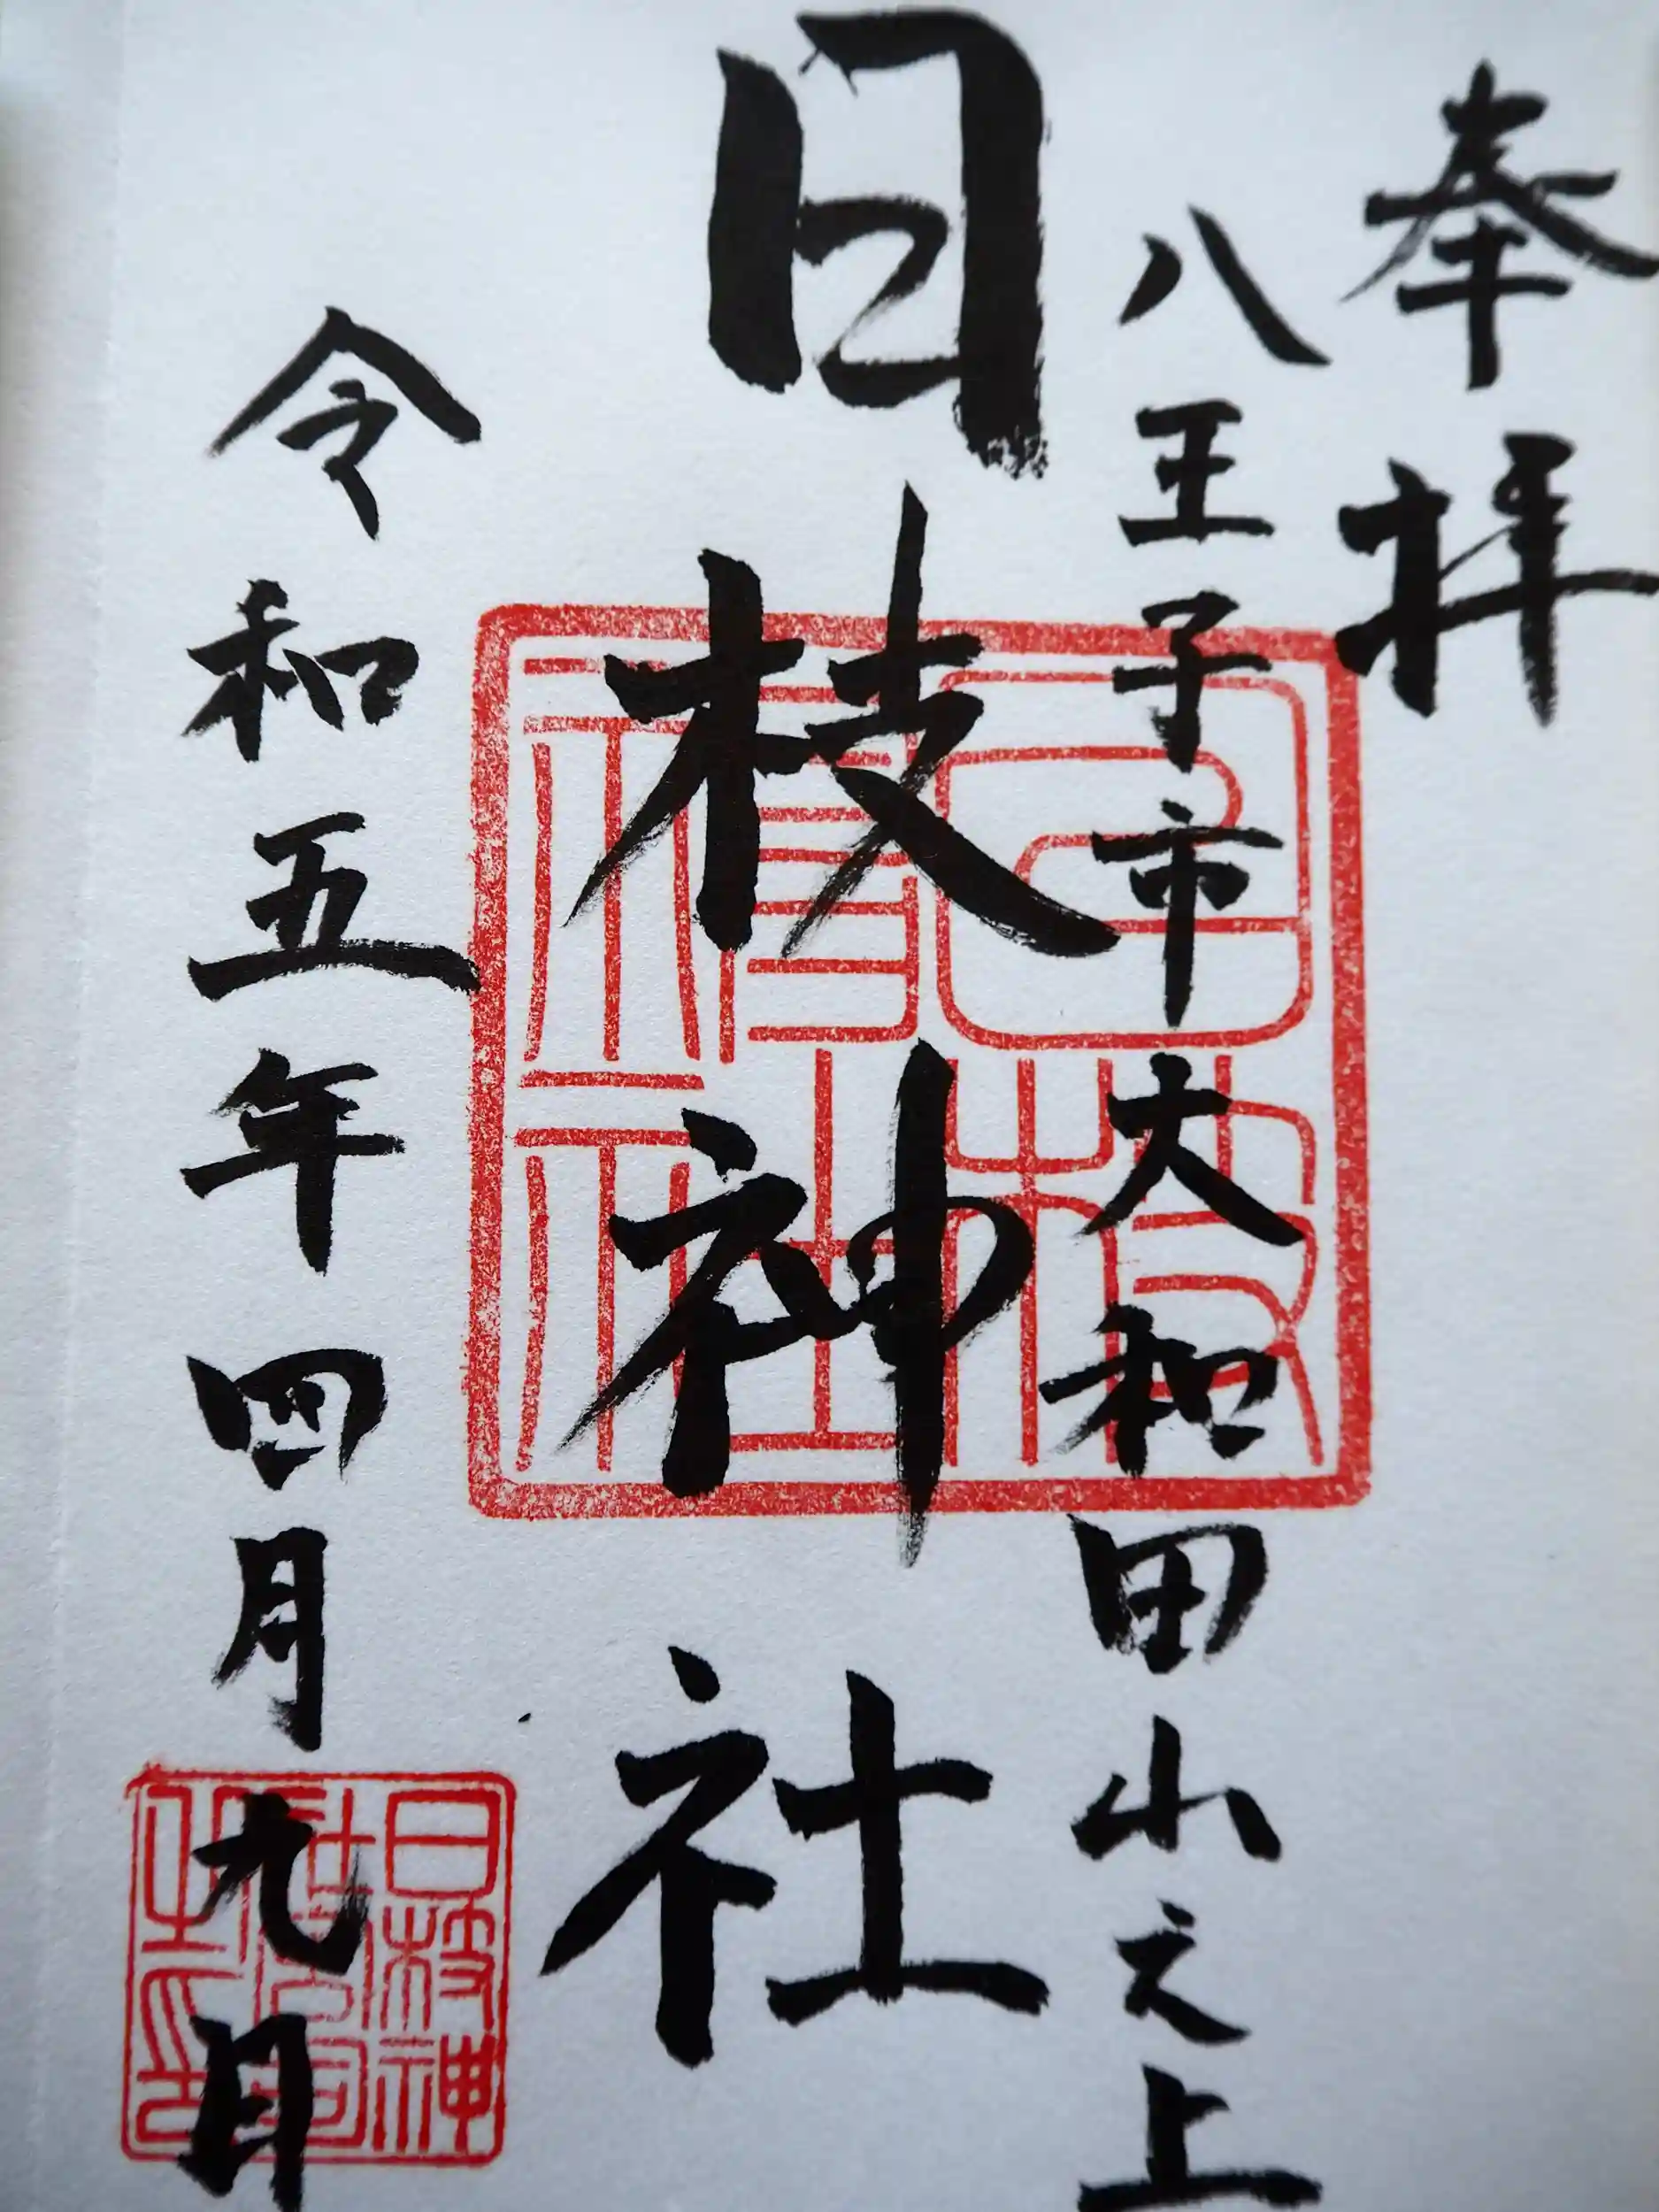 奉拝
八王子市大和田山之上
日枝神社
令和五年四月九日
日枝神社
日枝神